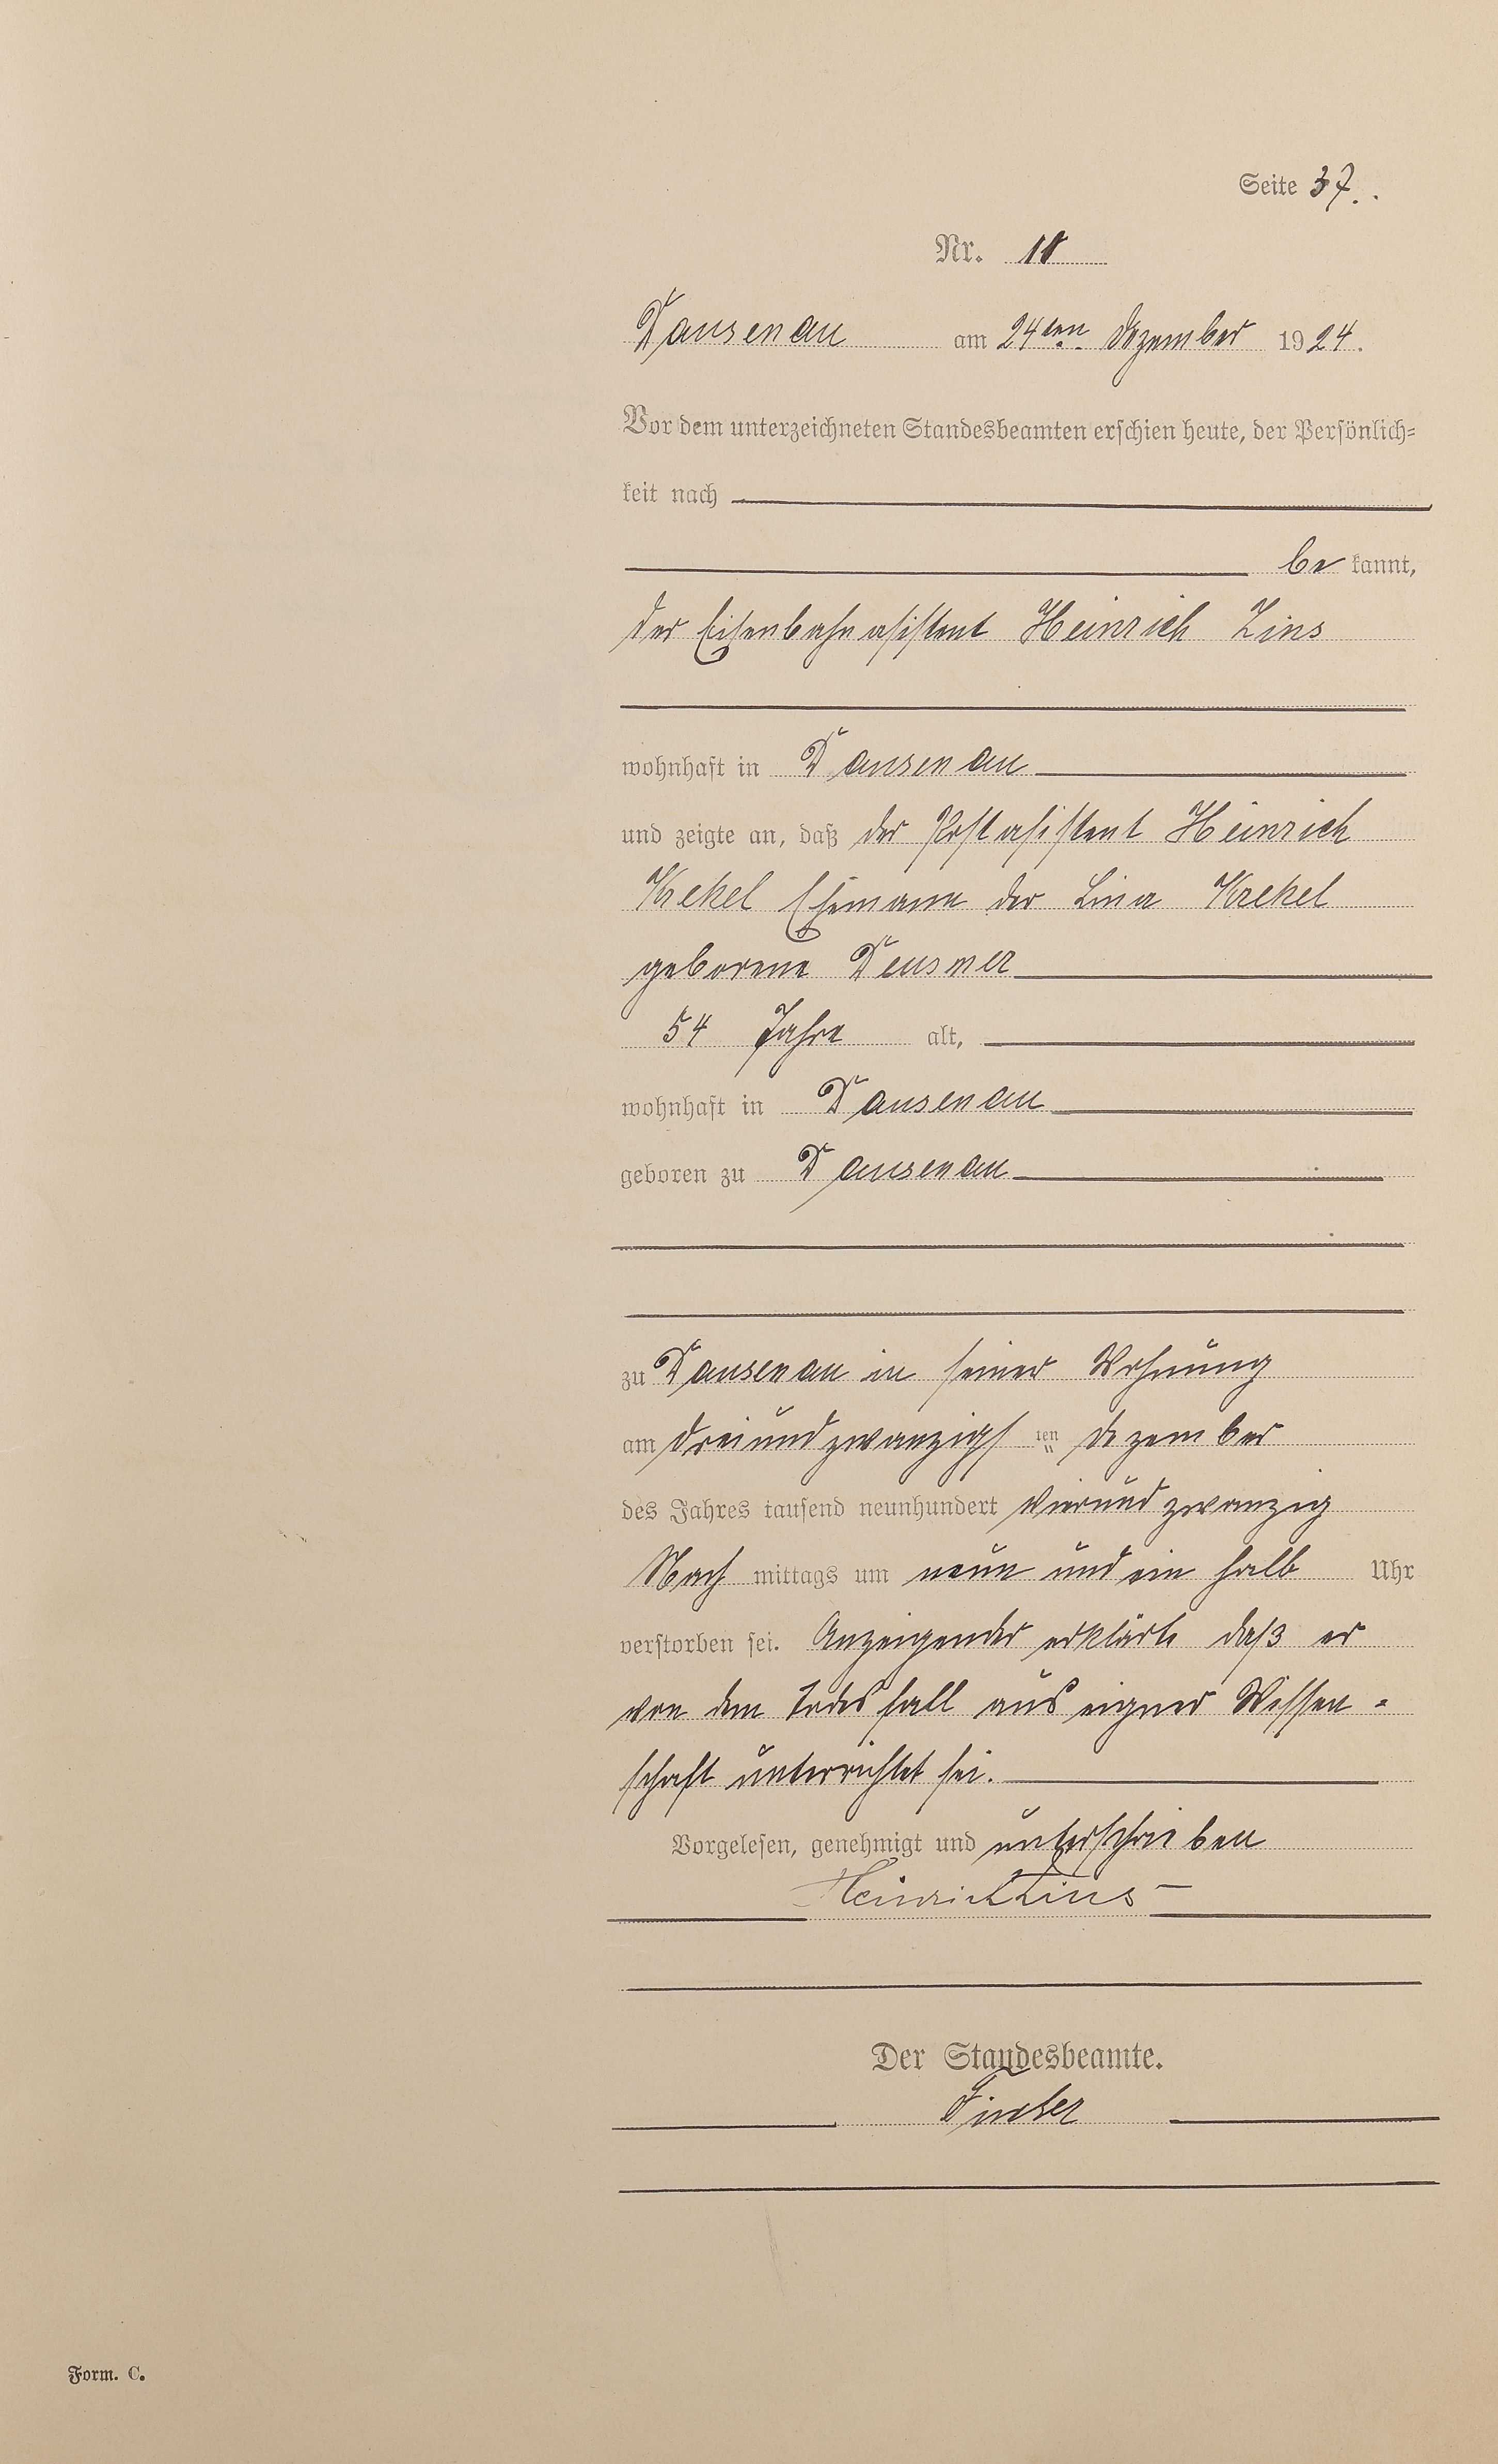 Seite 37.
Nr. 18
Dausenau am 24ten Dezember 1924.
Vor dem unterzeichneten Standesbeamten erschien heute, der Persönlich-
keit nach
be kannt,
der Eisenbahnasistent Heinrich Zins
wohnhaft in Dausenau
und zeigte an, daß der Postasistent Heinrich
Krekel Ehemann der Lina Krekel
geborene Deusner
54 Jahre alt,
wohnhaft in Dausenau
geboren zu Dausenau
zu Dausenau in seiner Wohnung
am dreiundzwanzigs ten Dezember
des Jahres tausend neunhundert vierundzwanzig
Nach mittags um neun und ein halb Uhr
verstorben sei. Anzeigender erklärte daß er
von dem Todesfall aus eigner Wissen-
schaft unterrichtet sei.
Vorgelesen, genehmigt und unterschrieben
Heinrich Zins
Der Standesbeamte.
Form. C.